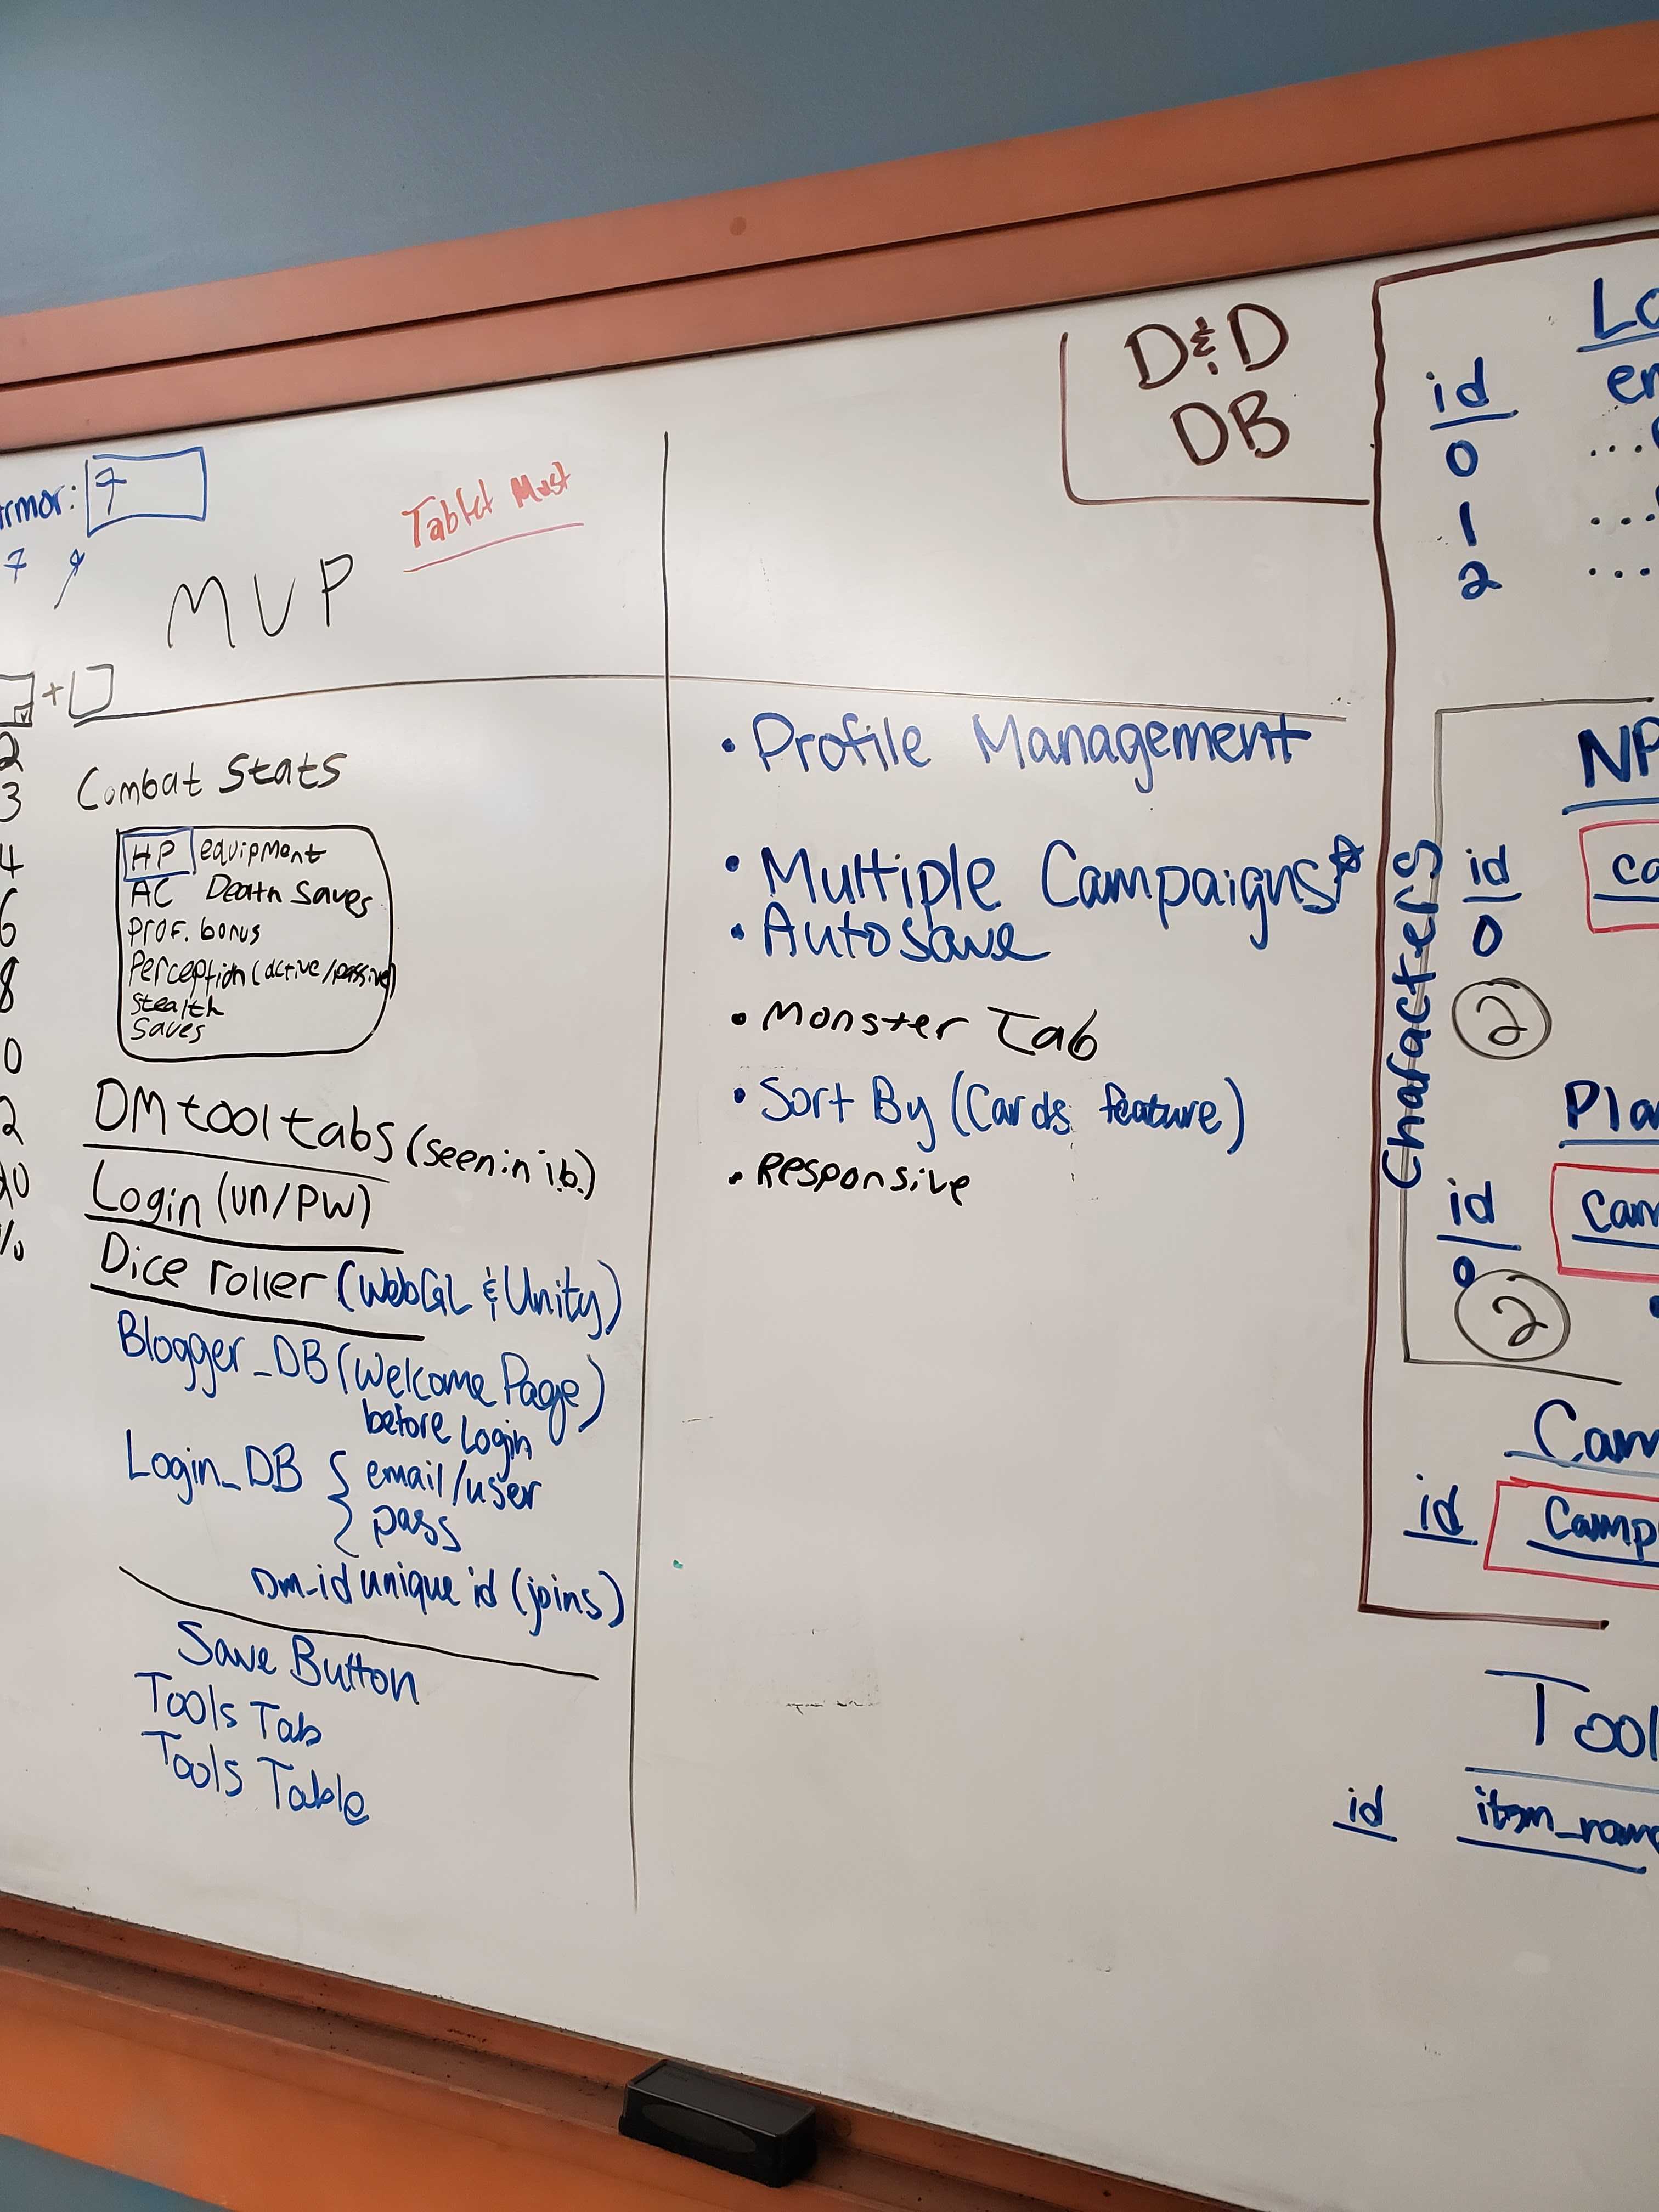 D&D
DB
id
0
1
2
armor: 7
7
Tablet Must
MVP
+
2
3
4
6
8
0
2
20
%
Combat Stats
HP equipment
AC Death Saves
Prof. bonus
Perception (active/passive)
Stealth
Saves
DM tool tabs (seen in i.b.)
Login (un/PW)
Dice roller (WebGL & Unity)
Blogger_DB (Welcome Page)
before Login
Login_DB { email/user
pass
Dm_id unique id (joins)
Save Button
Tools Tab
Tools Table
• Profile Management
• Multiple Campaigns☆
• Autosave
• Monster Tab
• Sort By (Cards feature)
• Responsive
Characters
NP
id
0
2
Pla
id
0
2
Cam
id
Camp
Tool
id item_name